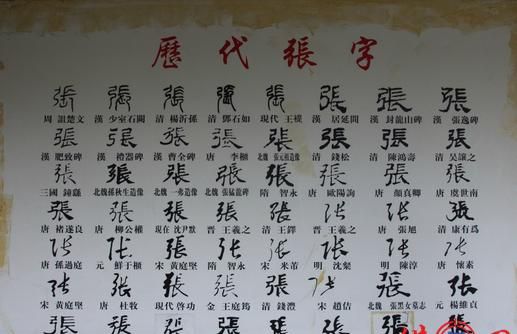 歷代張字
張 張 張 張 張 張 張 張
周 詛楚文 漢 少室石闕 清 楊沂孫 清 鄧石如 現代 王禔 漢 居延簡 漢 封龍山碑 漢 張遷碑
張 張 張 張 張 張 張 張
漢 肥致碑 漢 禮器碑 漢 曹全碑 唐 李樾 北魏 張元祖造像 清 錢松 清 陳鴻壽 清 吳讓之
張 張 張 張 張 張 張 張
三國 鍾繇 北魏 孫秋生造像 北魏 一弗造像 北魏 張猛龍碑 隋 智永 唐 歐陽詢 唐 顏真卿 唐 虞世南
張 張 張 張 張 張 張 張
唐 褚遂良 唐 柳公權 現在 沈尹默 晋 王羲之 清 王鐸 晋 王羲之 唐 張旭 清 康有為
張 張 張 張 張 張 張 張
唐 孫過庭 元 鮮于樞 宋 黃庭堅 隋 智永 宋 米芾 明 沈粲 明 陳淳 唐 懷素
張 張 張 張 張 張 張 張
宋 黃庭堅 唐 杜牧 現代 啓功 金 王庭筠 清 錢灃 宋 趙佶 北魏 張黑女墓志 元 楊維貞
張 張 張 張 張 張 張